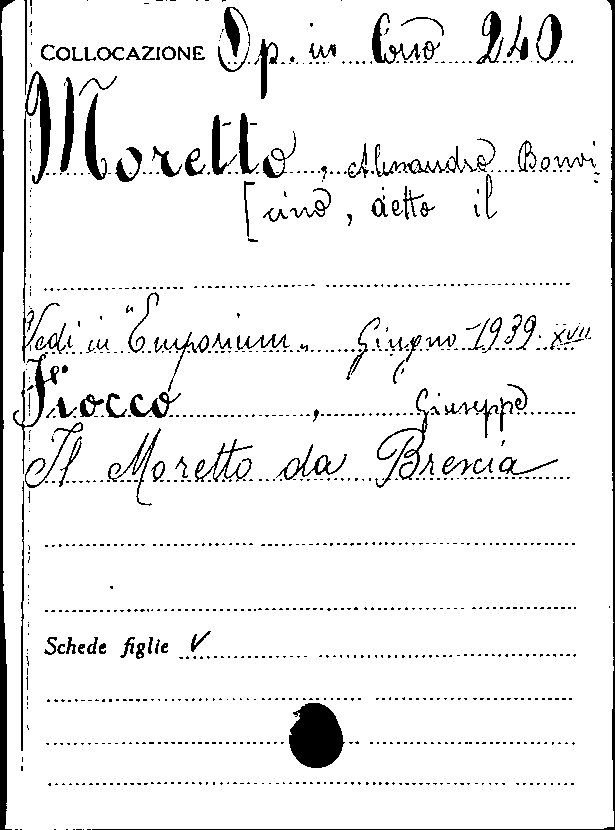 COLLOCAZIONE Op. in Corso 240
Moretto, Alessandro Bonvi-
[cino, detto il
Vedi in "Emporium" Giugno 1939. XVII
Fiocco, Giuseppe
Il Moretto da Brescia
Schede figlie V